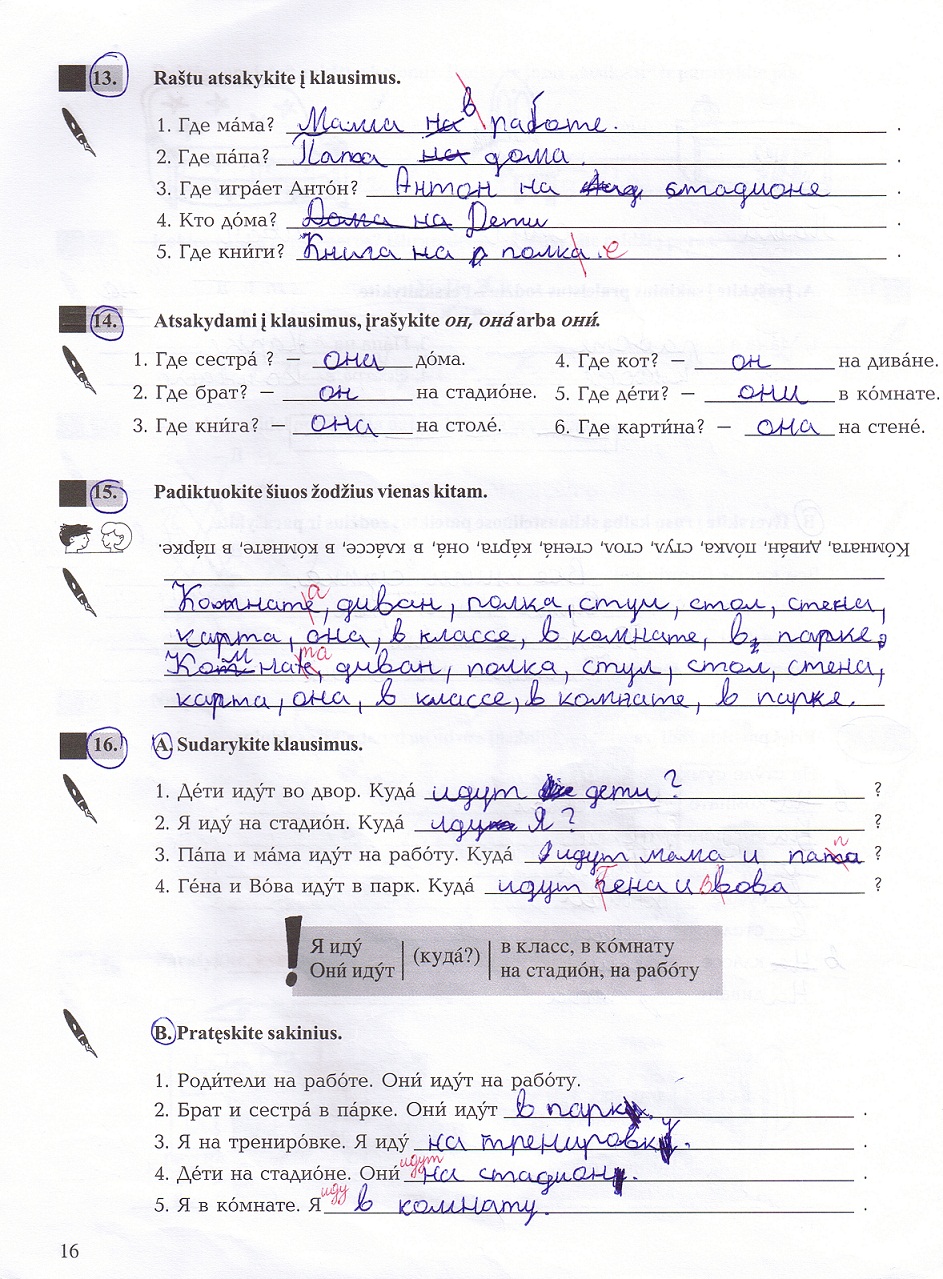 13. Raštu atsakykite į klausimus.
1. Где ма́ма? Мама на в работе.
2. Где па́па? Папа на дома.
3. Где игра́ет Анто́н? Антон на стадионе.
4. Кто до́ма? Дома на Дети.
5. Где кни́ги? Книга на полка. е
14. Atsakydami į klausimus, įrašykite он, она́ arba они́.
1. Где сестра́ ? – она до́ма. 4. Где кот? – он на дива́не.
2. Где брат? – он на стадио́не. 5. Где де́ти? – они в ко́мнате.
3. Где кни́га? – она на столе́. 6. Где карти́на? – она на стене́.
15. Padiktuokite šiuos žodžius vienas kitam.
Ко́мната, дива́н, по́лка, стул, стол, стена́, ка́рта, она́, в кла́ссе, в ко́мнате, в па́рке.
Комнате, а диван, полка, стул, стол, стена,
карта, она, в классе, в комнате, в парке,
Комнате, та диван, полка, стул, стол, стена,
карта, она, в классе, в комнате, в парке.
16. A. Sudarykite klausimus.
1. Де́ти иду́т во двор. Куда́ идут дети? ?
2. Я иду́ на стадио́н. Куда́ иду я? ?
3. Па́па и ма́ма иду́т на рабо́ту. Куда́ идут мама и папа ?
4. Ге́на и Во́ва иду́т в парк. Куда́ идут Гена и Вова ?
! Я иду́ (куда́?) в класс, в ко́мнату
Они́ иду́т на стадио́н, на рабо́ту
B. Pratęskite sakinius.
1. Роди́тели на рабо́те. Они́ иду́т на рабо́ту.
2. Брат и сестра́ в па́рке. Они́ иду́т в парк.
3. Я на трениро́вке. Я иду́ на тренировку.
4. Де́ти на стадио́не. Они́ идут на стадион.
5. Я в ко́мнате. Я иду в комнату.
16